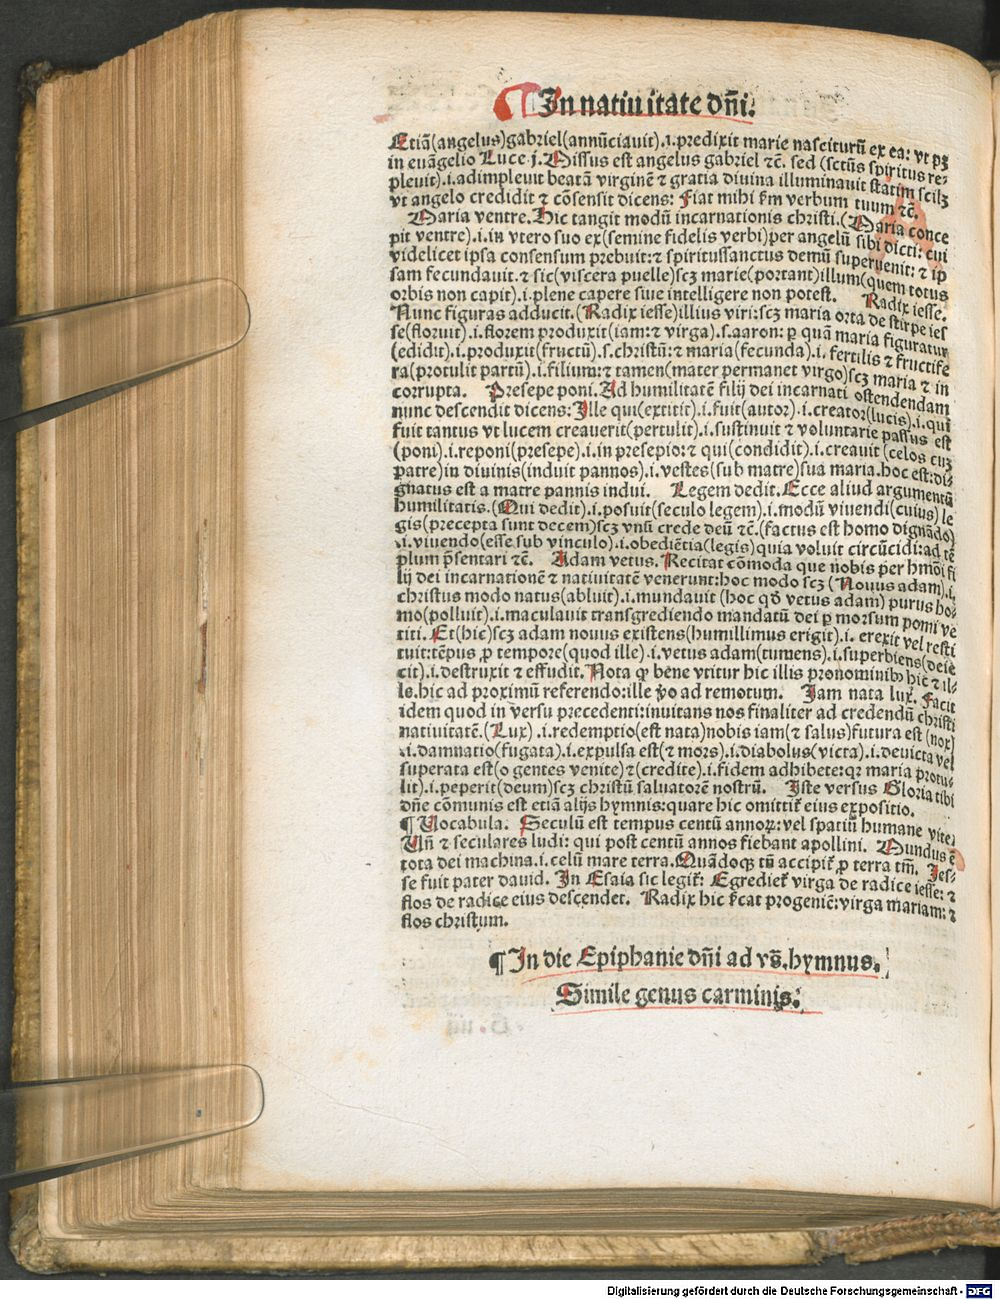 ¶ In natiuitate dn̄i.
Etiā(angelus)gabriel(annūciauit).i.predixit marie nasciturū ex ea: vt pꝫ
in euāgelio Luce j. Missus est angelus gabriel ⁊c̄. sed (sctūs spiritus re-
pleuit).i.adimpleuit beatā virginē ⁊ gratia diuina illuminauit statim scilꝫ
vt angelo credidit ⁊ cōsensit dicens: Fiat mihi s̄m verbum tuum ⁊c̄.
Maria ventre. Hic tangit modū incarnationis christi.(Maria conce
pit ventre).i.in vtero suo ex(semine fidelis verbi)per angelū sibi dicti: cui
videlicet ipsa consensum prebuit: ⁊ spiritussanctus demū superuenit: ⁊ ip
sam fecundauit. ⁊ sic(viscera puelle)scꝫ marie(portant)illum(quem totus
orbis non capit).i.plene capere siue intelligere non potest. Radix iesse.
Nunc figuras adducit.(Radix iesse)illius viri: scꝫ maria orta de stirpe ies
se(floruit).i.florem produxit(iam: ⁊ virga).s.aaron: ꝑ quā maria figuratur
(edidit).i.produxit(fructū).s.christū: ⁊ maria(fecunda).i. fertilis ⁊ fructife
ra(protulit partū).i.filium: ⁊ tamen(mater permanet virgo)scꝫ maria ⁊ in
corrupta. Presepe poni. Ad humilitatē filij dei incarnati ostendendam
nunc descendit dicens: Ille qui(extitit).i.fuit(autor).i.creator(lucis).i.qui
fuit tantus vt lucem creauerit(pertulit).i.sustinuit ⁊ voluntarie passus est
(poni).i.reponi(presepe).i.in presepio: ⁊ qui(condidit).i.creauit (celos cuꝫ
patre)in diuinis(induit pannos).i.vestes(sub matre)sua maria. hoc est: di-
gnatus est a matre pannis indui. Legem dedit. Ecce aliud argumentū
humilitatis.(Qui dedit).i.posuit(seculo legem).i.modū viuendi(cuius) le
gis(precepta sunt decem)scꝫ vnū crede deū ⁊c̄.(factus est homo dignādo)
.i.viuendo(esse sub vinculo).i.obediētia(legis)quia voluit circūcidi: ad tē
plum p̄sentari ⁊c̄. Adam vetus. Recitat cōmoda que nobis per hmōi fi
lij dei incarnationē ⁊ natiuitatē venerunt: hoc modo scꝫ (Nouus adam).i.
christus modo natus(abluit).i.mundauit (hoc qd̄ vetus adam) purus ho-
mo(polluit).i.maculauit transgrediendo mandatū dei ꝑ morsum pomi ve
titi. Et(hic)scꝫ adam nouus existens(humillimus erigit).i. erexit vel resti
tuit: tēpus ꝓ tempore(quod ille).i.vetus adam(tumens).i.superbiens(deie
cit).i.destruxit ⁊ effudit. Nota ꝙ bene vtitur hic illis pronominibꝫ hic ⁊ il-
le. hic ad proximū referendo: ille v̄o ad remotum. Iam nata lux. Facit
idem quod in versu precedenti: inuitans nos finaliter ad credendū christi
natiuitatē.(Lux) .i.redemptio(est nata)nobis iam(⁊ salus)futura est (nox)
.i.damnatio(fugata).i.expulsa est(⁊ mors).i.diabolus(victa).i.deuicta vel
superata est(o gentes venite)⁊(credite).i.fidem adhibete: qꝛ maria protu-
lit).i.peperit(deum)scꝫ christū saluatorē nostrū. Iste versus Gloria tibi
dn̄e cōmunis est etiā alijs hymnis: quare hic omittit̄ eius expositio.
¶ Uocabula. Seculū est tempus centū annoꝝ: vel spatiū humane vite.
Un̄ ⁊ seculares ludi: qui post centū annos fiebant apollini. Mundus ē
tota dei machina.i.celū mare terra. Quādoqꝫ tū accipit̄ ꝓ terra tm̄. Ies-
se fuit pater dauid. In Esaia sic legit̄: Egrediet̄ virga de radice iesse: ⁊
flos de radice eius descendet. Radix hic s̄cat progeniē: virga mariam: ⁊
flos christum.
¶ In die Epiphanie dn̄i ad vs̄. hymnus.
Simile genus carminis.
Digitalisierung gefördert durch die Deutsche Forschungsgemeinschaft - DFG